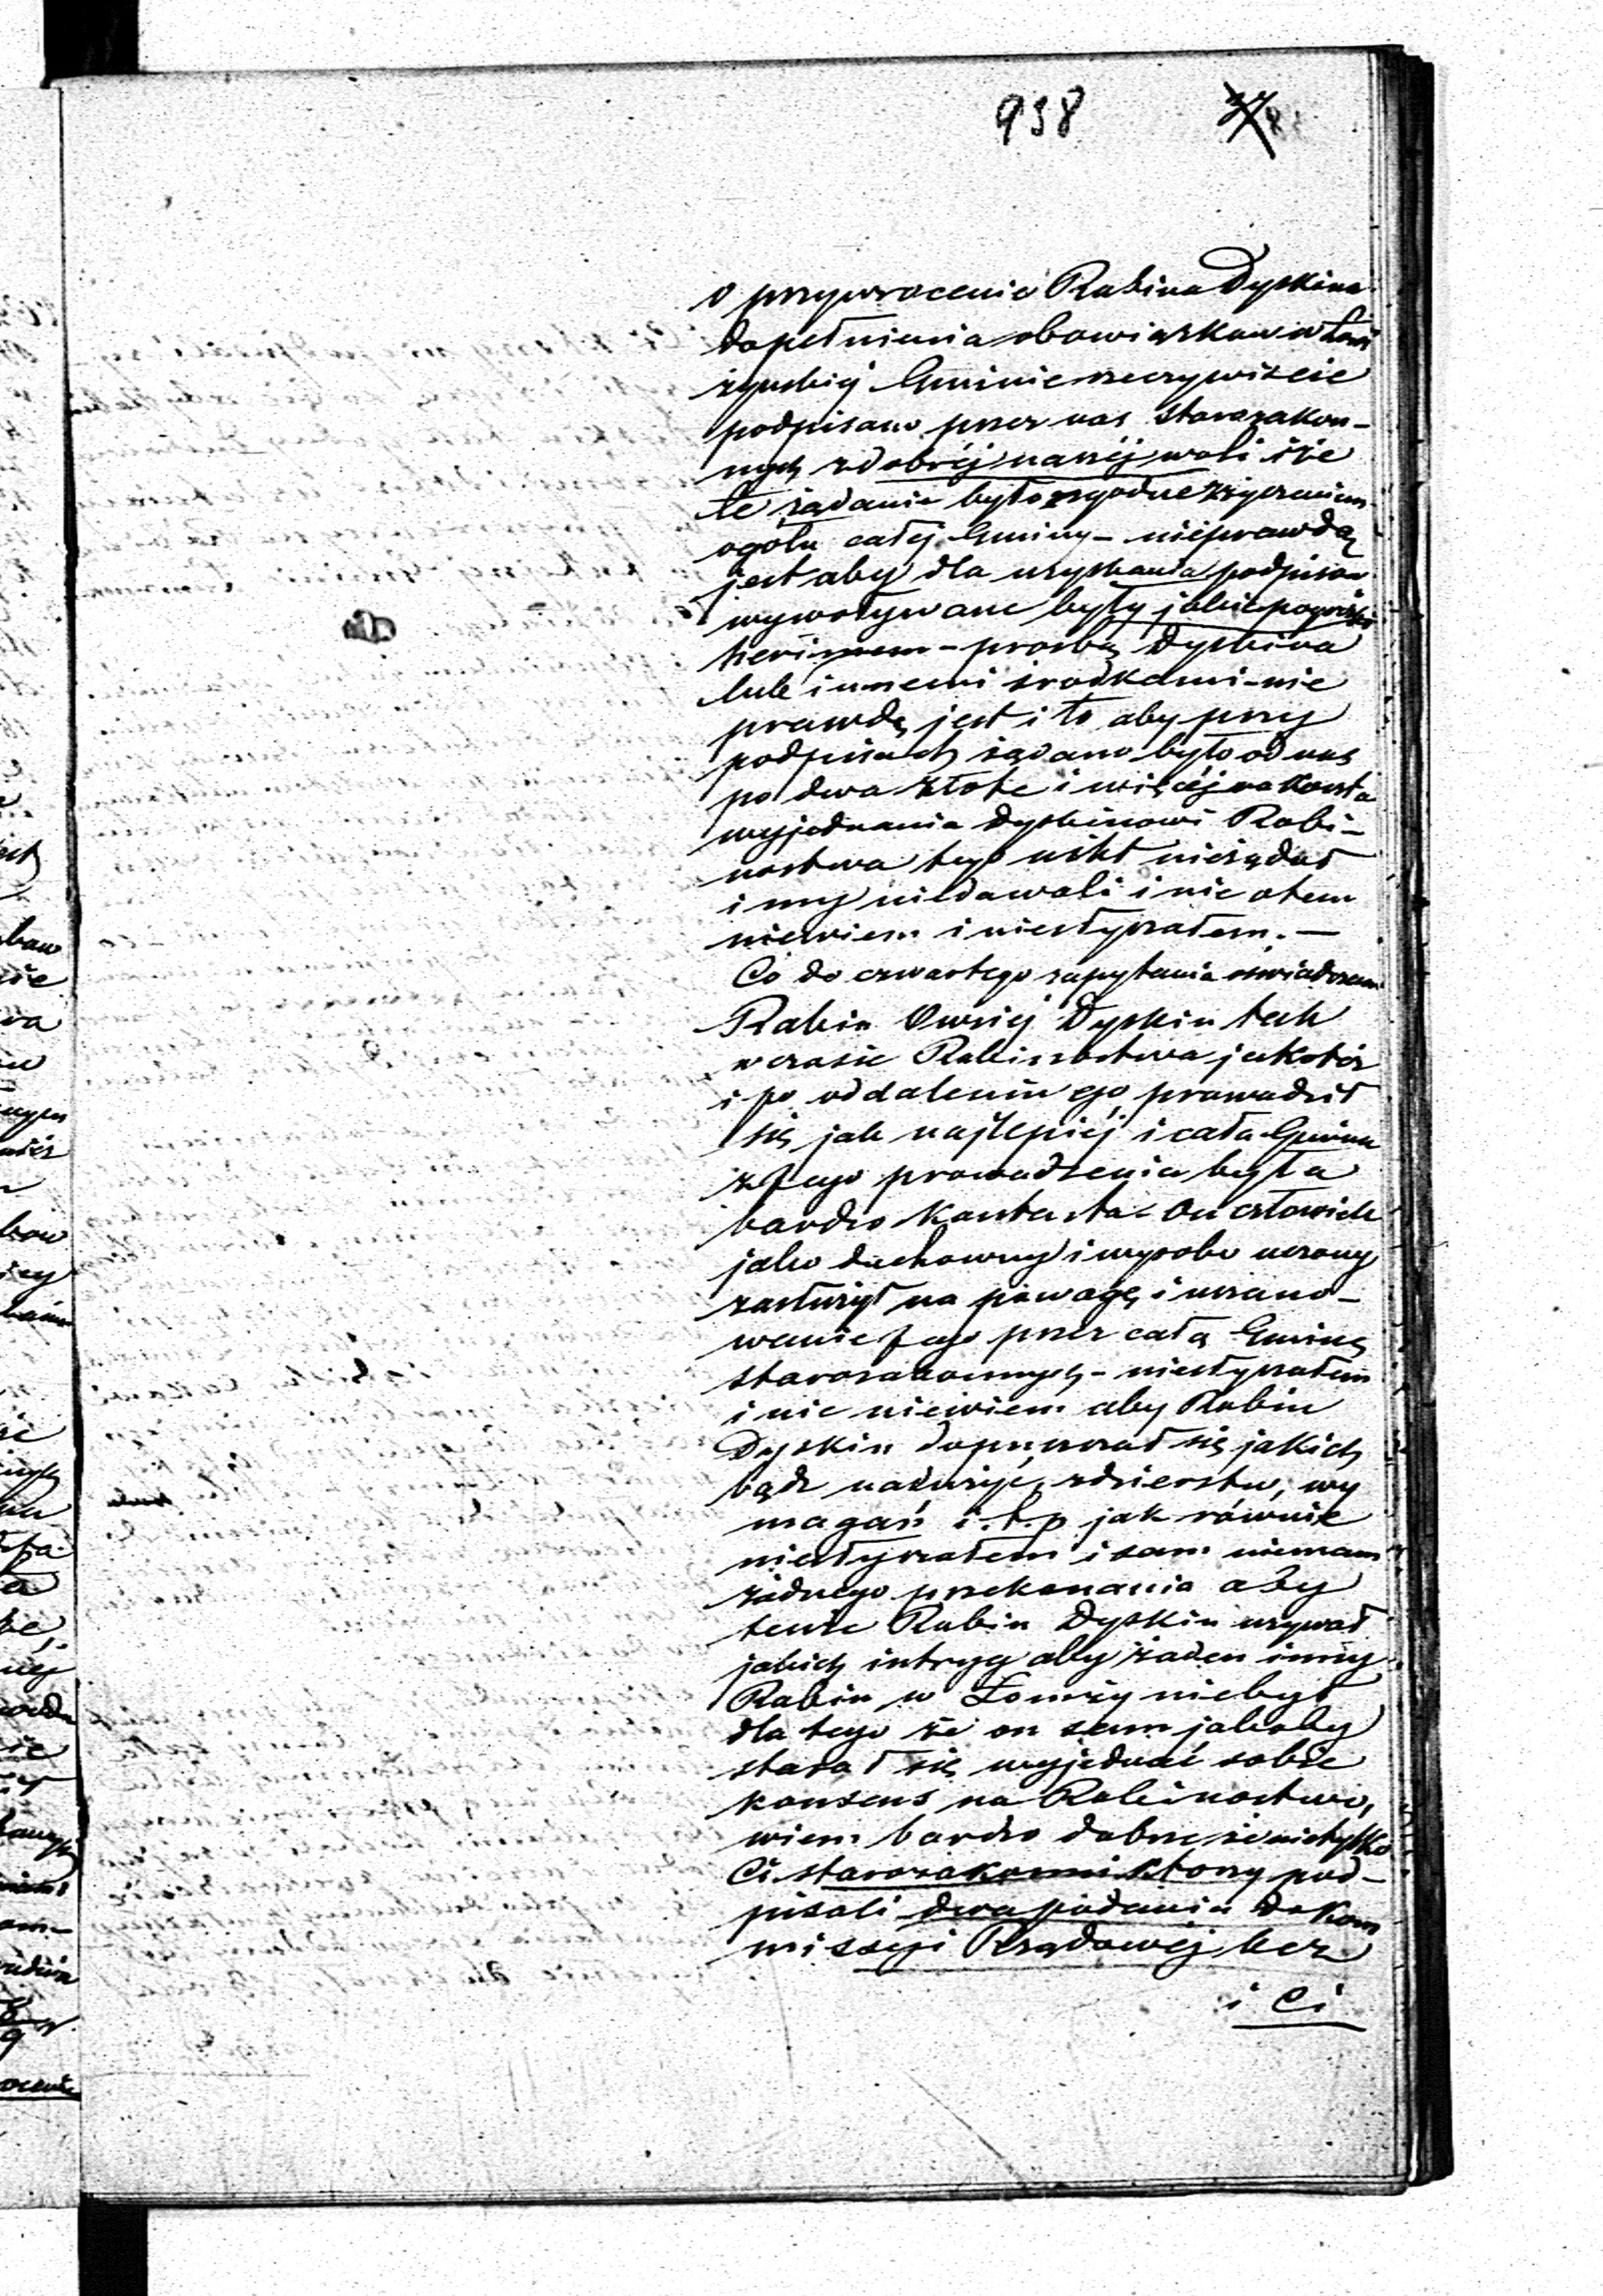 938
o przywrocenie Rabina Dyskina
dopełnienia obowiązkow w Łom
żyńskiéj Gminie rzeczywiscie
podpisano przez nas starozakon-
nych z dobréj naszéj woli i że
te żądanie było zgodne z życzeniem
ogółu całéj Gminy - nieprawdą
jest aby dla uzyskania podpisow
wywoływane były jakie pogróżki
herimem - prosbą Dyskina
lub innemi srodkami - nie
prawdą jest i to aby przy
podpisach żądano było od nas
po dwa złote i więcéj na koszta
wyjednania Dyskinowi Rabi-
nostwa tego nikt nieżądał
i my niedawali i nic otem
niewiem i niesłyszałem. -
Co do czwartego zapytania oswiadczam
Rabin Owsiéj Dyskin tak
w czasie Rabinostwa jakoteż
i po oddaleniu ego prowadził
się jak najlepiéj i cała Gmina
z Jego prowadzenia była
bardzo kontenta - On człowiek
jako duchowny i wysoko uczony
zasłużył na powagę i uszano-
wanie Jego przez całą Gminę
starozakonnych - niesłyszałem
i nic niewiem aby Rabin
Dyskin dopuszczał się jakich
bądz nadużyć, zdzierstw, wy
magań i.t.p jak równie
niesłyszałem i sam niemam
żadnego przekonania aby
tenże Rabin Dyskin używał
jakich intryg aby żaden inny
Rabin w Łomży niebył
dla tego że on sam jakoby
starał się wyjednać sobie
konsens na Rabinostwo,
wiem bardzo dobrze że nietylko
Ci starozakonni ktorzy pod-
pisali dwa podania do Kom
missyi Rządowéj lecz
i Ci